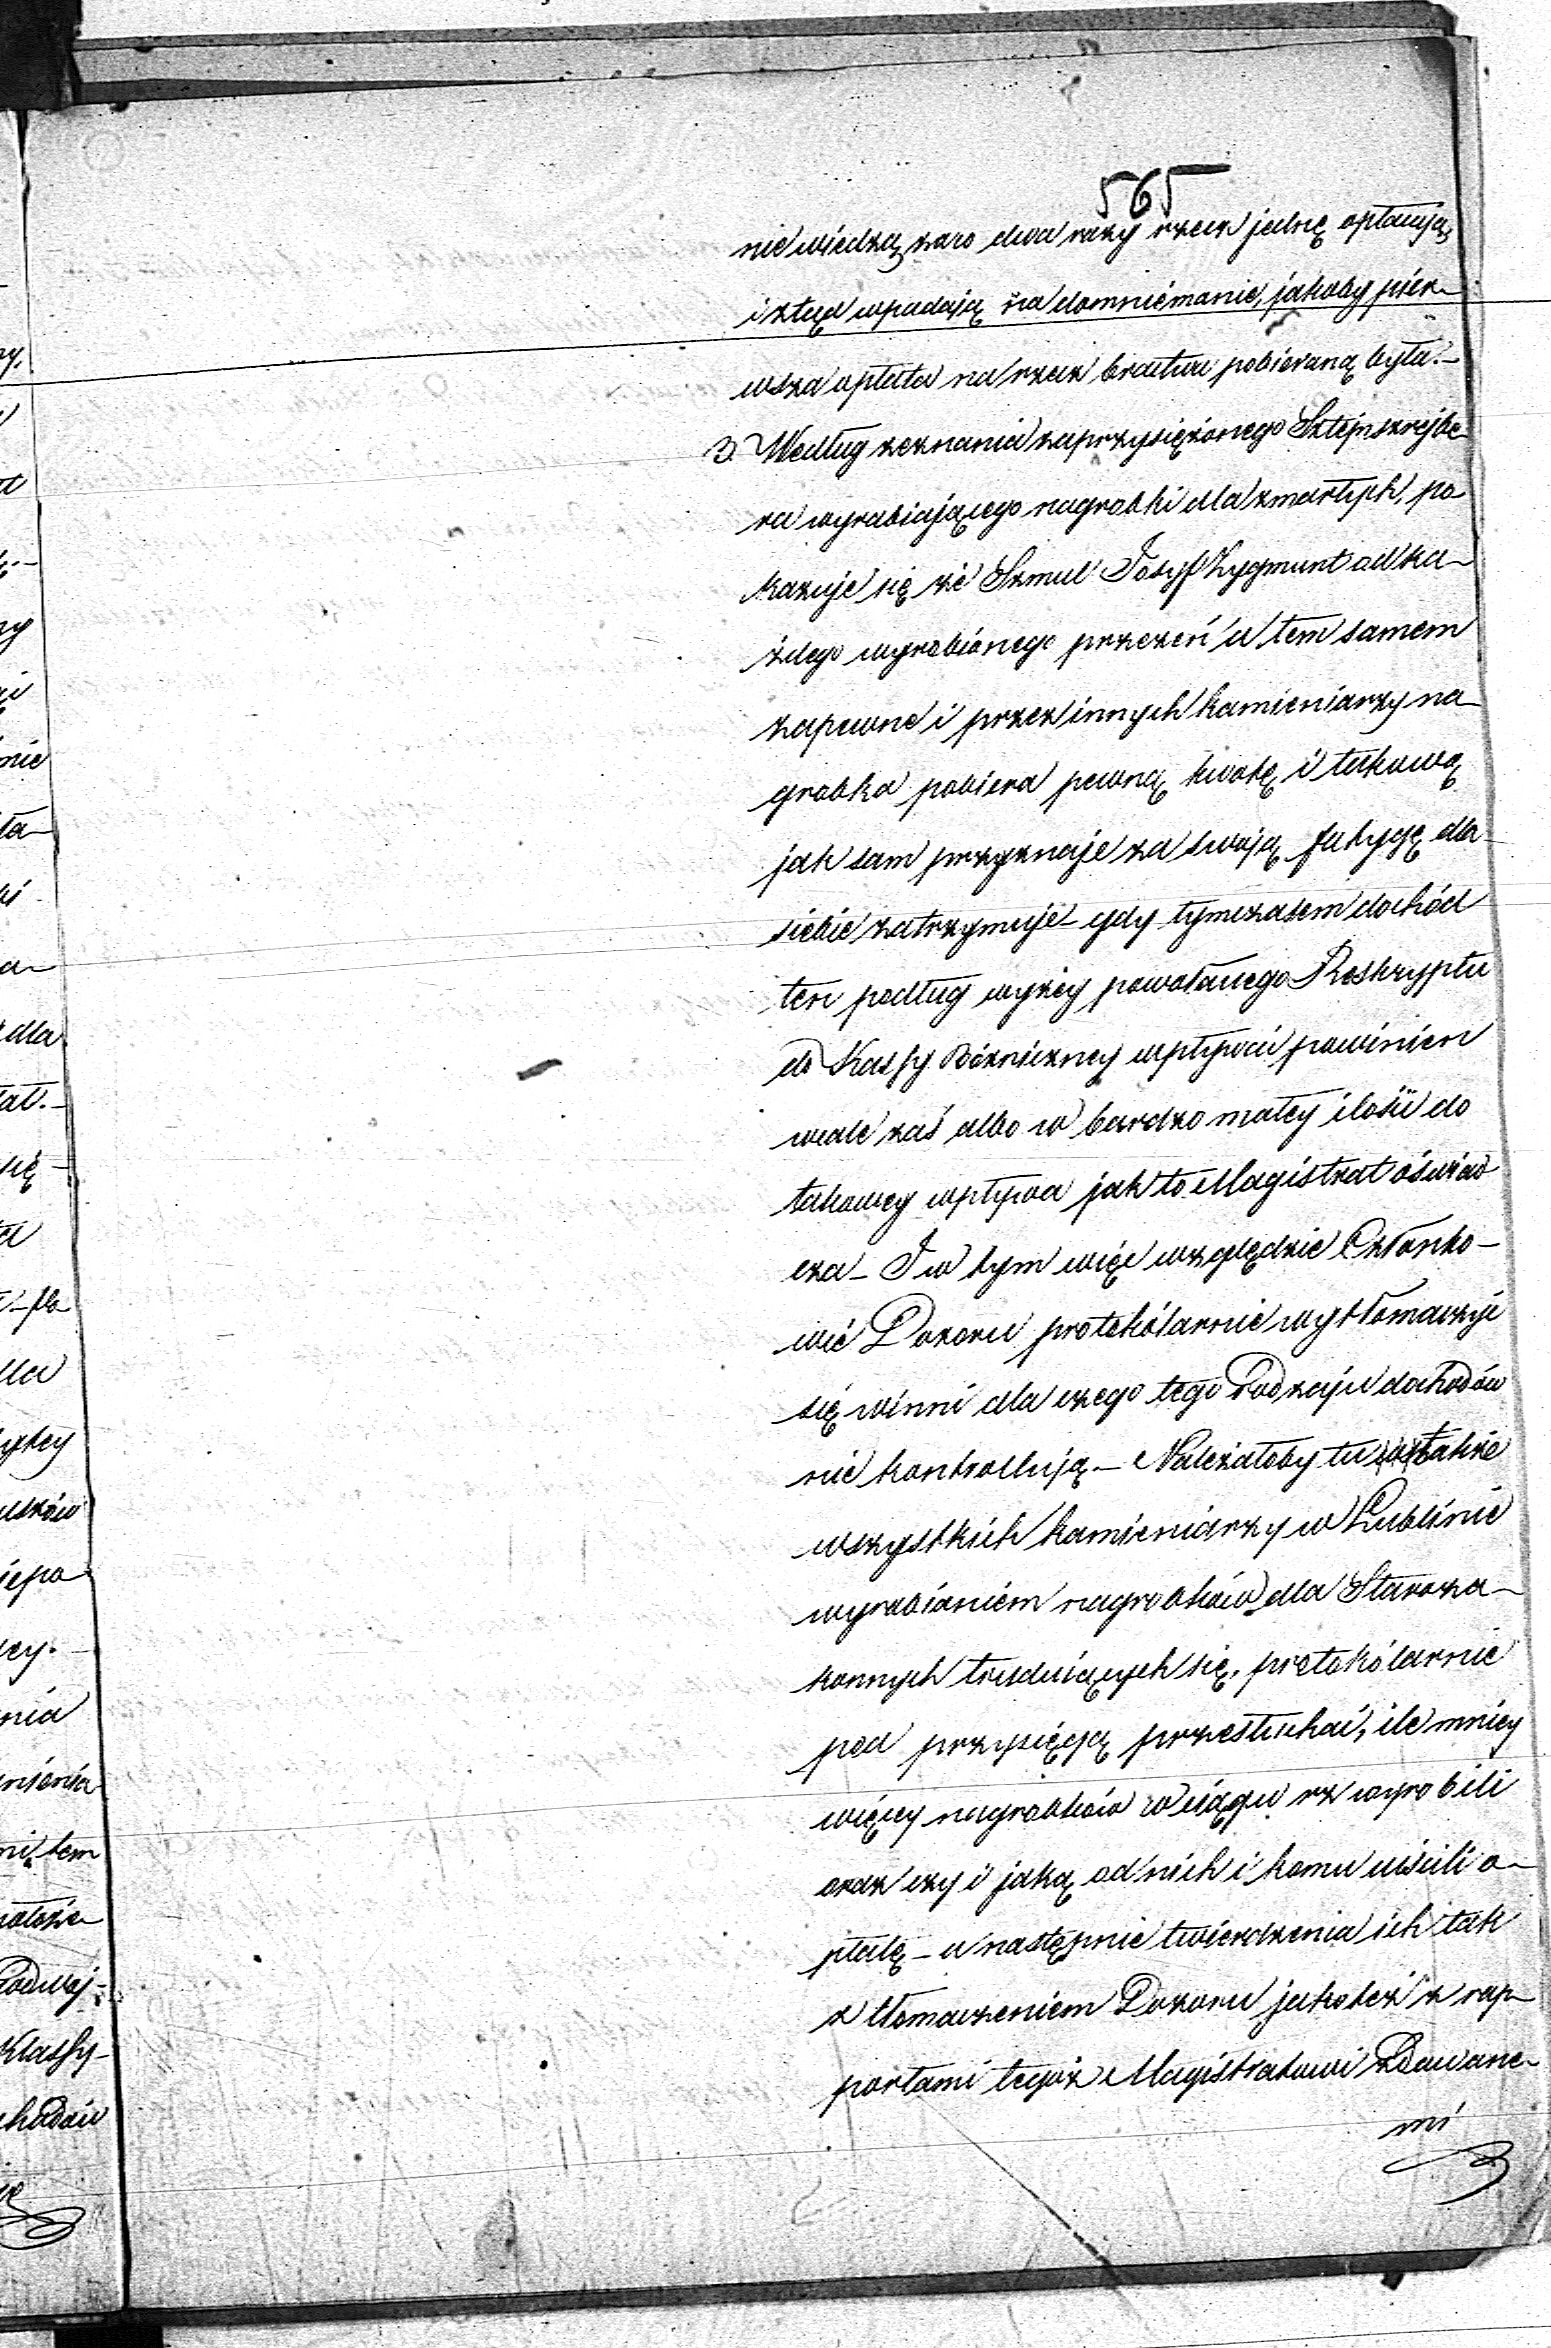 565
nie wiedzą że co dwa razy rzecz jedną opłacają,
i ztąd wpadają na domniemanie, jakoby pier-
wsza opłata na rzecz bractwa pobieraną była.-
3. Według zeznania zaprzysiężonego Sztejnszrejbe-
ra wyrabiającego nagrobki dla zmarłych, po-
kazuje się że Szmul Josyf Zygmunt od ka-
żdego wyrobionego przezeń a tem samem
zapewne i przez innych kamieniarzy na-
grobka pobiera pewną kwotę i takową
jak sam przyznaje za swoją fatygę dla
siebie zatrzymuje – gdy tymczasem dochód
ten podług wyżey powołanego Reskryptu
do Kassy Bóżniczney wpływać powinien
wcale zaś albo w bardzo małey ilości do
takowey wpływa jak to Magistrat oświad-
cza – I w tym więc względzie Członko-
wie Dozoru protokólarnie wytłomaczyć
się winni dla czego tego Rodzaju dochodów
nie kontrollują. – Należałoby tu także
wszystkich kamieniarzy w Lublinie
wyrabianiem nagrobków dla Staroza-
konnych trudniących się, protokólarnie
pod przysięgą przesłuchać, ile mniey
więcey nagrobków w ciągu rz wyrobili
oraz czy i jaką od nich i komu uiścili o-
płatę – a następnie twierdzenia ich tak
z tłomaczeniem Dozoru jakoteż z rap-
portami tegoż Magistratowi zdawane-
mi